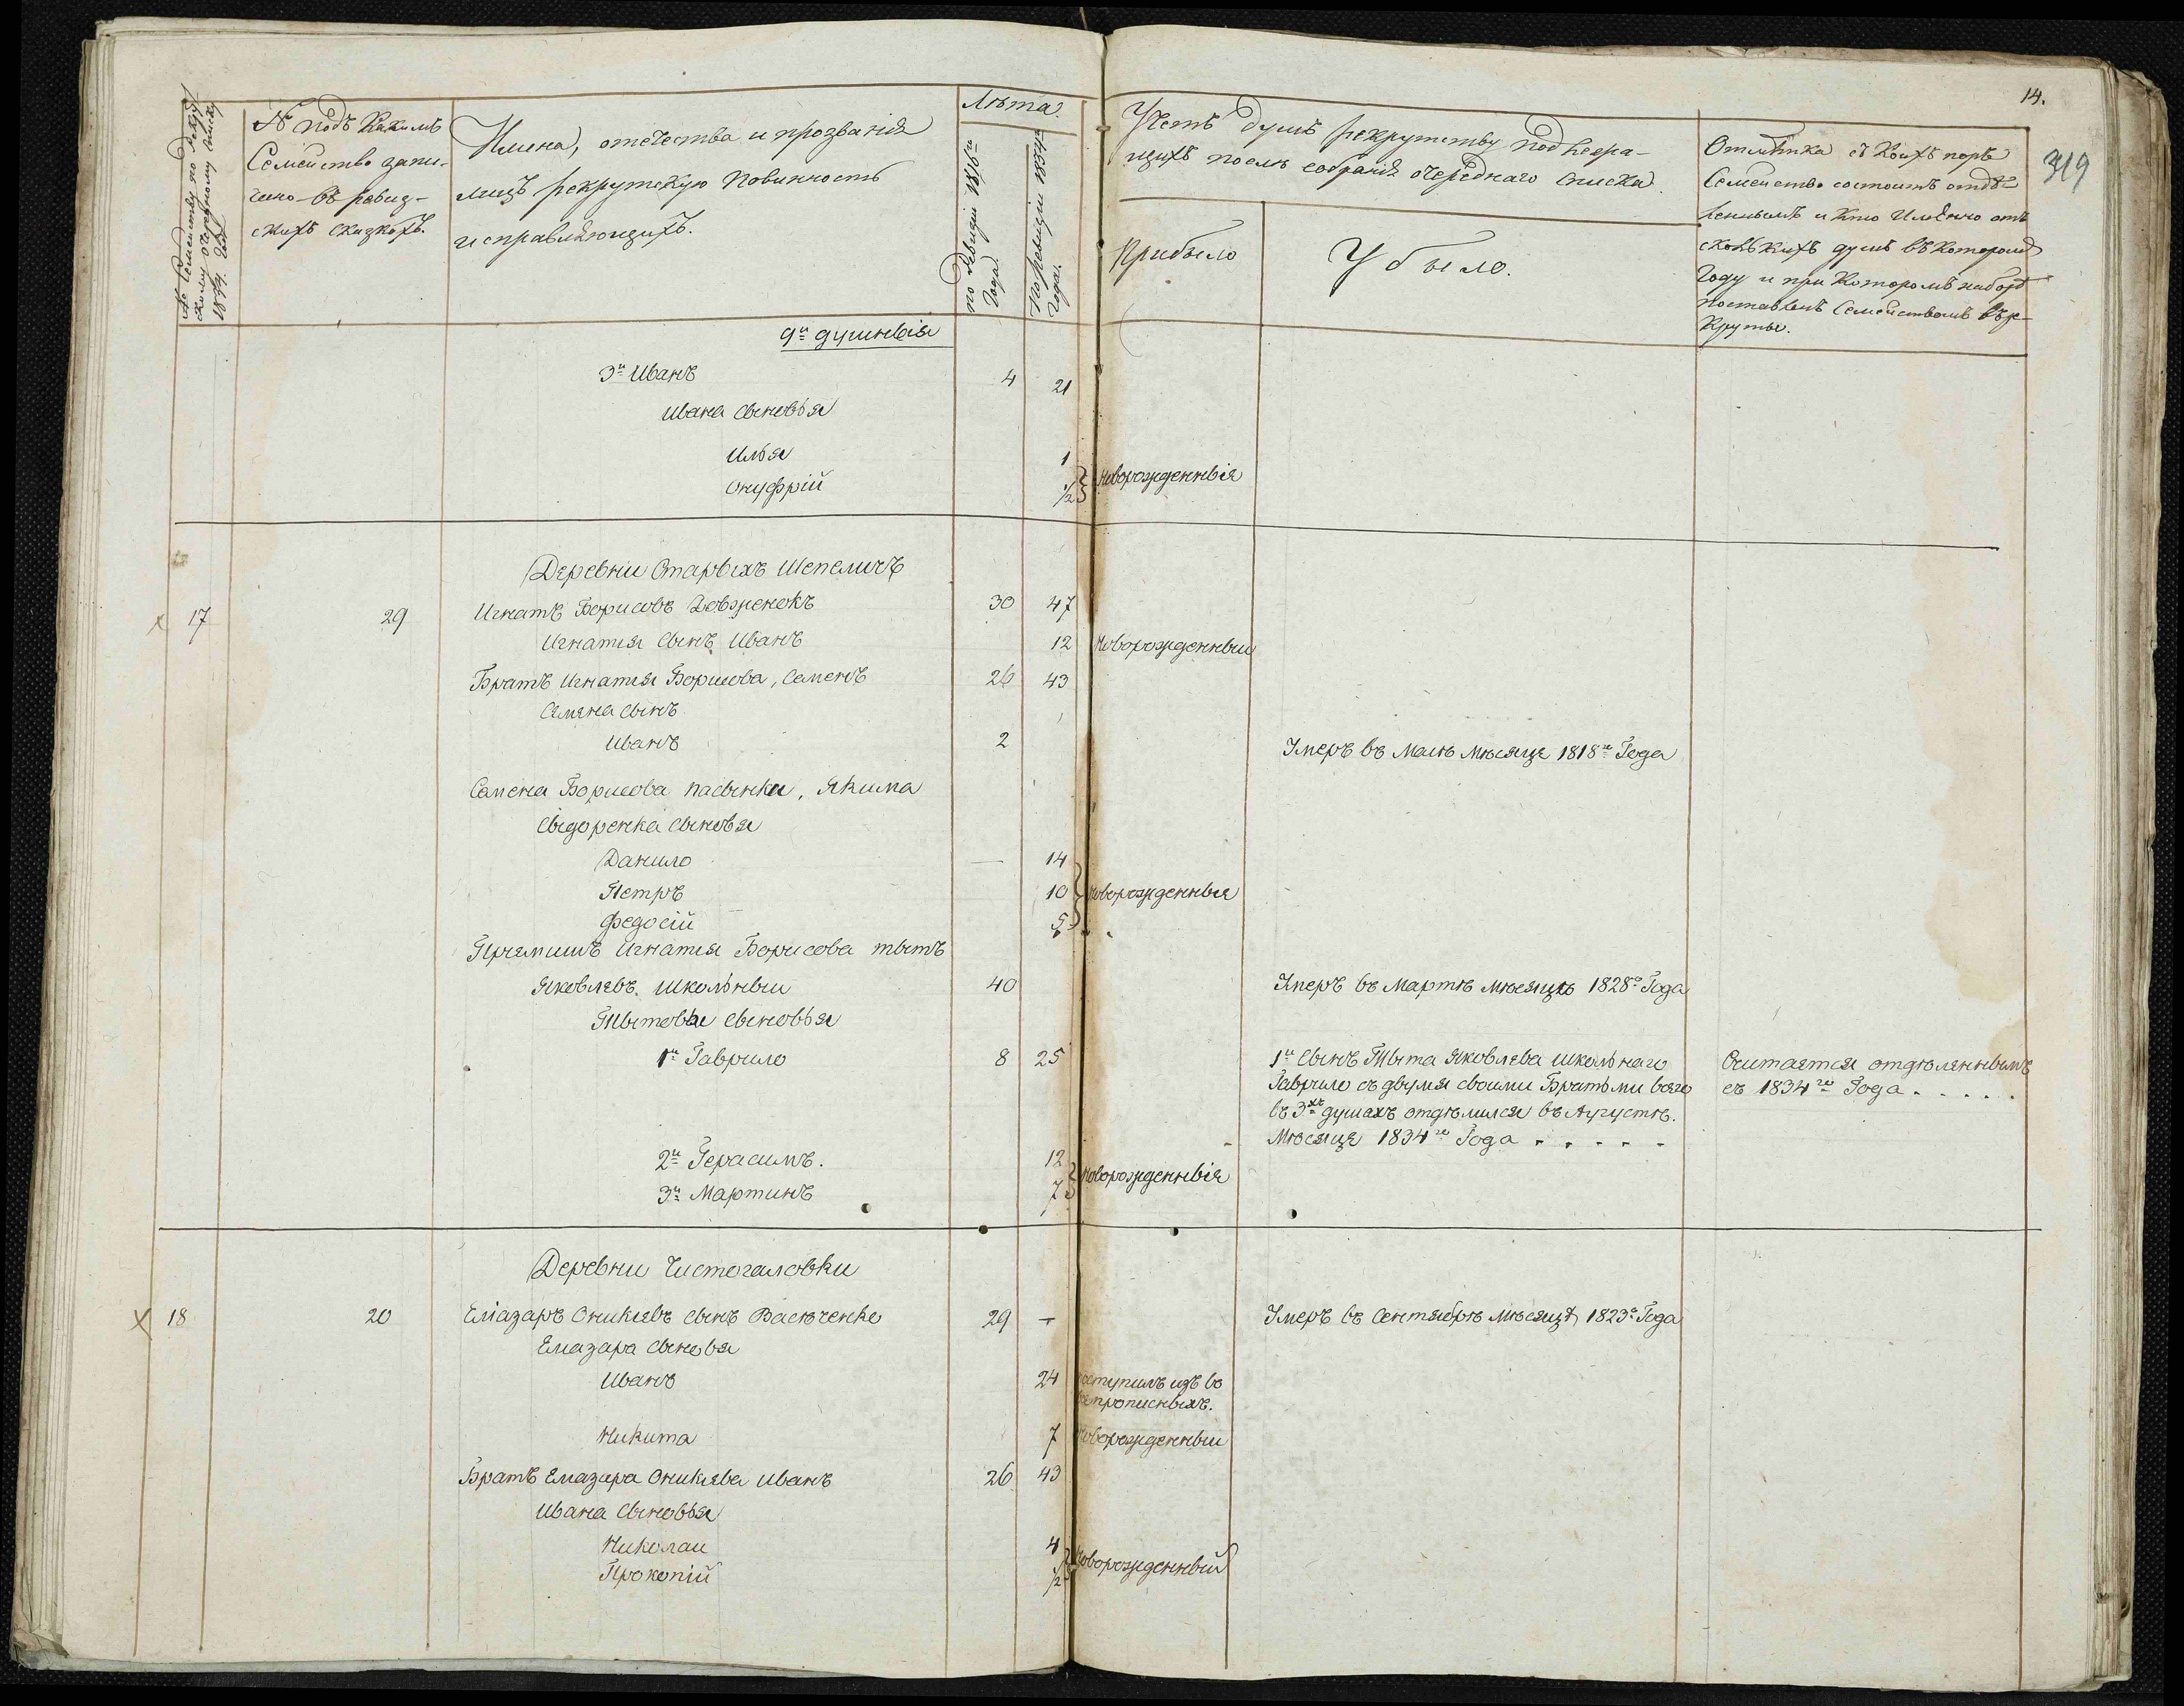 14.
319
№ Семейству по рекрутскому очередному списку 1834. года
№ подъ какимъ
Семейство запи-
сано въ ревиз-
скихъ сказкахъ.
Имена, отечества и прозванія
лицъ рекрутскую повинность
исправляющихъ.
Лѣта.
по ревизіи 1816го Года
По ревизіи 1834го Года.
Учетъ душъ рекрутству подлежа-
щихъ послѣ собранія очереднаго списка.
Прибыло
Убыло.
Отмѣтка съ коихъ поръ
Семейство состоитъ отдѣ-
леннымъ и кто именно отъ
сколькихъ душъ въ которомъ
Году и при которомъ наборѣ
поставленъ семействомъ въ ре-
круты.
9и душныя
3й Иванъ 4 21
Ивана сыновья
Илья 1
Новорожденныя
Онуфрій 1/2
Деревни Старыхъ Шепеличъ
17 29 Игнатъ Борисовъ Довженокъ 30 47
Игнатія сынъ Иванъ 12 Новорожденныи
Братъ Игнатія Борисова, Семенъ 26 43
Семена сынъ
Иванъ 2 Умеръ въ Маіѣ мѣсяце 1818го Года
Семена Борисова пасынки, Якима
Сыдоренка сыновя
Данило — 14
Петръ 10 Новорожденныя
Федосій 5
Племяшъ Игнатія Борисова тытъ
Яковлевъ школьныи 40 Умеръ въ Мартѣ мѣсяцѣ 1828го Года
Тытовы сыновья
1й Гаврило 8 25 1й сынъ Тыта Яковлева школьнаго Считается отдѣленнымъ
Гаврило съ двумя своими Братьми всего съ 1834го Года . . . . .
въ 3хъ душахъ отдѣлился въ Августѣ.
Мѣсяце 1834го Года . . . . .
2й Герасимъ. 12
Новорожденныя
3й Мартинъ 7
Деревни Чистогаловки
18 20 Еліазаръ Оникіевъ сынъ Васюченко 29 — Умеръ въ Сентябрѣ мѣсяцѣ 1823го Года
Елиазара сыновя
Иванъ 24 поступилъ изъ
непрописныхъ.
Никита 7 Новорожденныи
Братъ Елиазара Оникіева Иванъ 26 43
Ивана сыновья
Николаи 4
Новорожденный
Прокопій 1/2